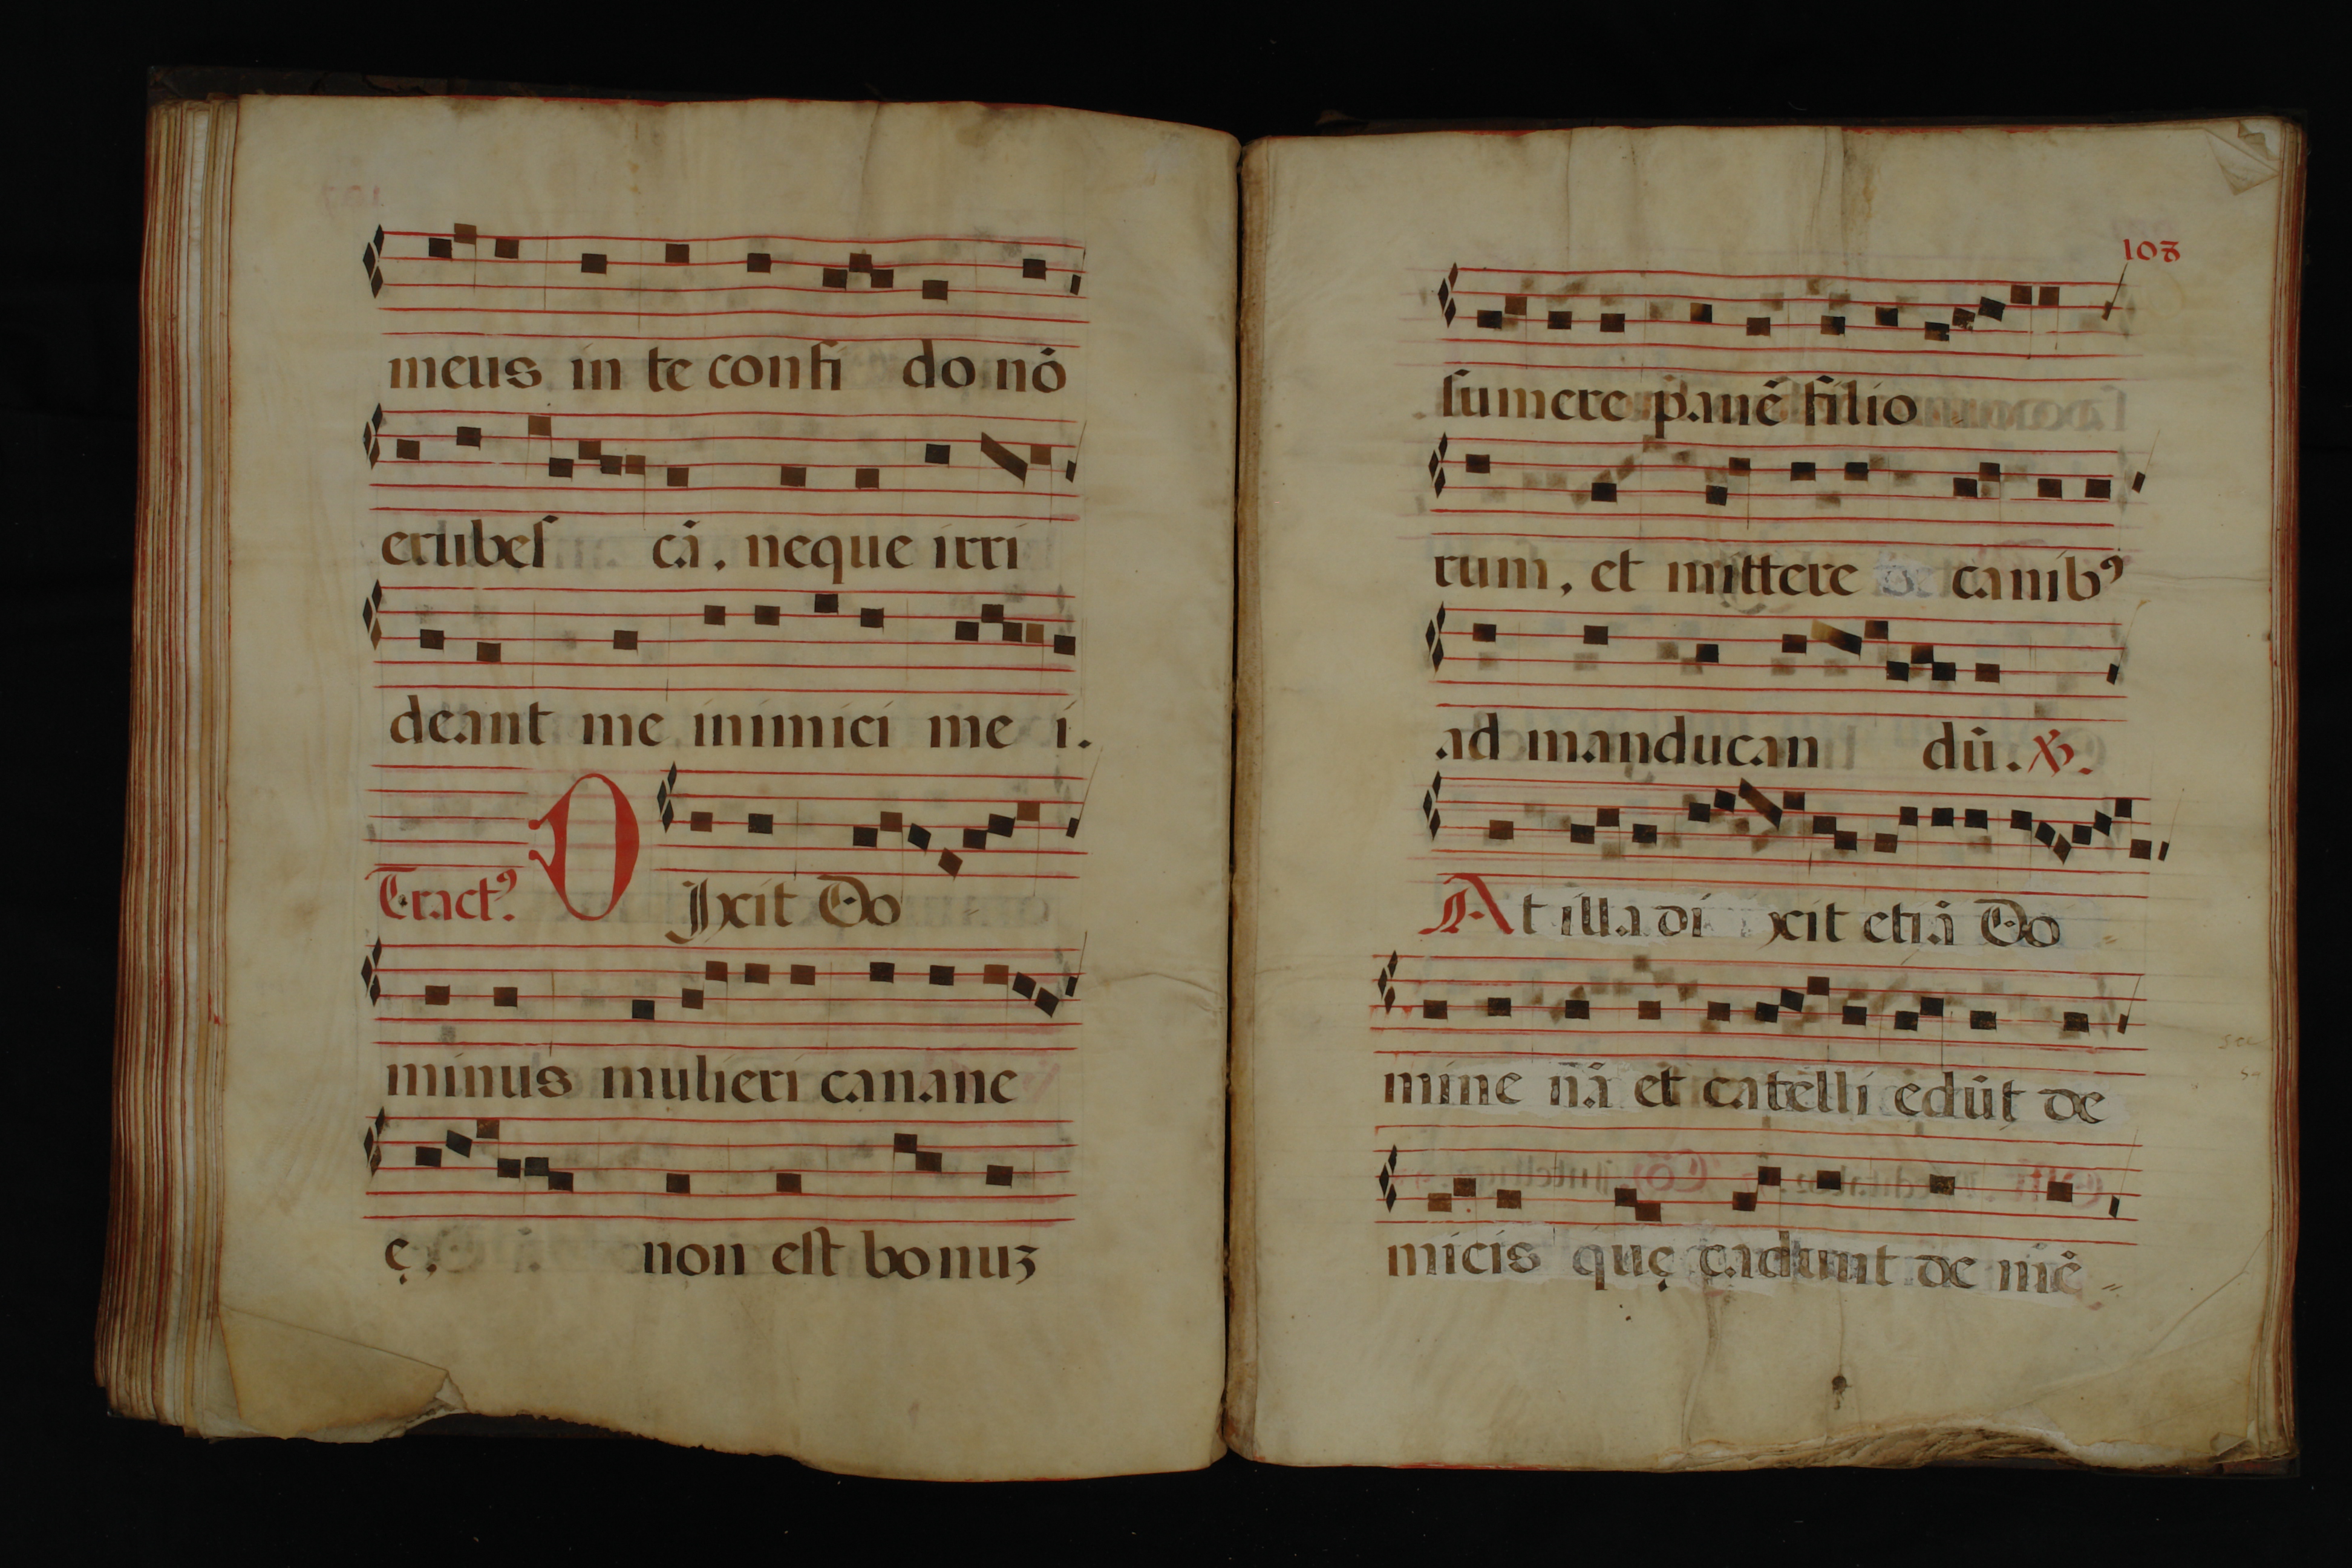 meus in te confi do nō
erubeſ cā. neque irri
deant me inimici me i.
Tractꝰ. D Ixit Do
minus mulieri canane
ę. non eſt bonuʒ
103
ſumere panē filio
rum, et mittere canibꝰ
ad manducan dū. ℣.
At illa di xit etiā Do
mine nā et catelli edūt de
micis quę cadunt de mē